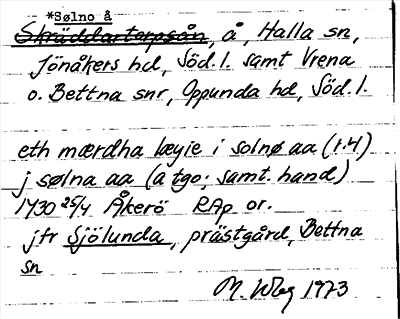 *Sølno å
Skräddartorpsån, å, Halla sn,
Jönåkers hd, Söd.l. samt Vrena
o. Bettna snr, Oppunda hd, Söd.l.
eth mærdha læyie i solnø aa (r.4)
j sølna aa (a tgo; samt. hand)
1430 25/4 Åkerö RAp or.
jfr Sjölunda, prästgård, Bettna
sn
M. Wbg 1973